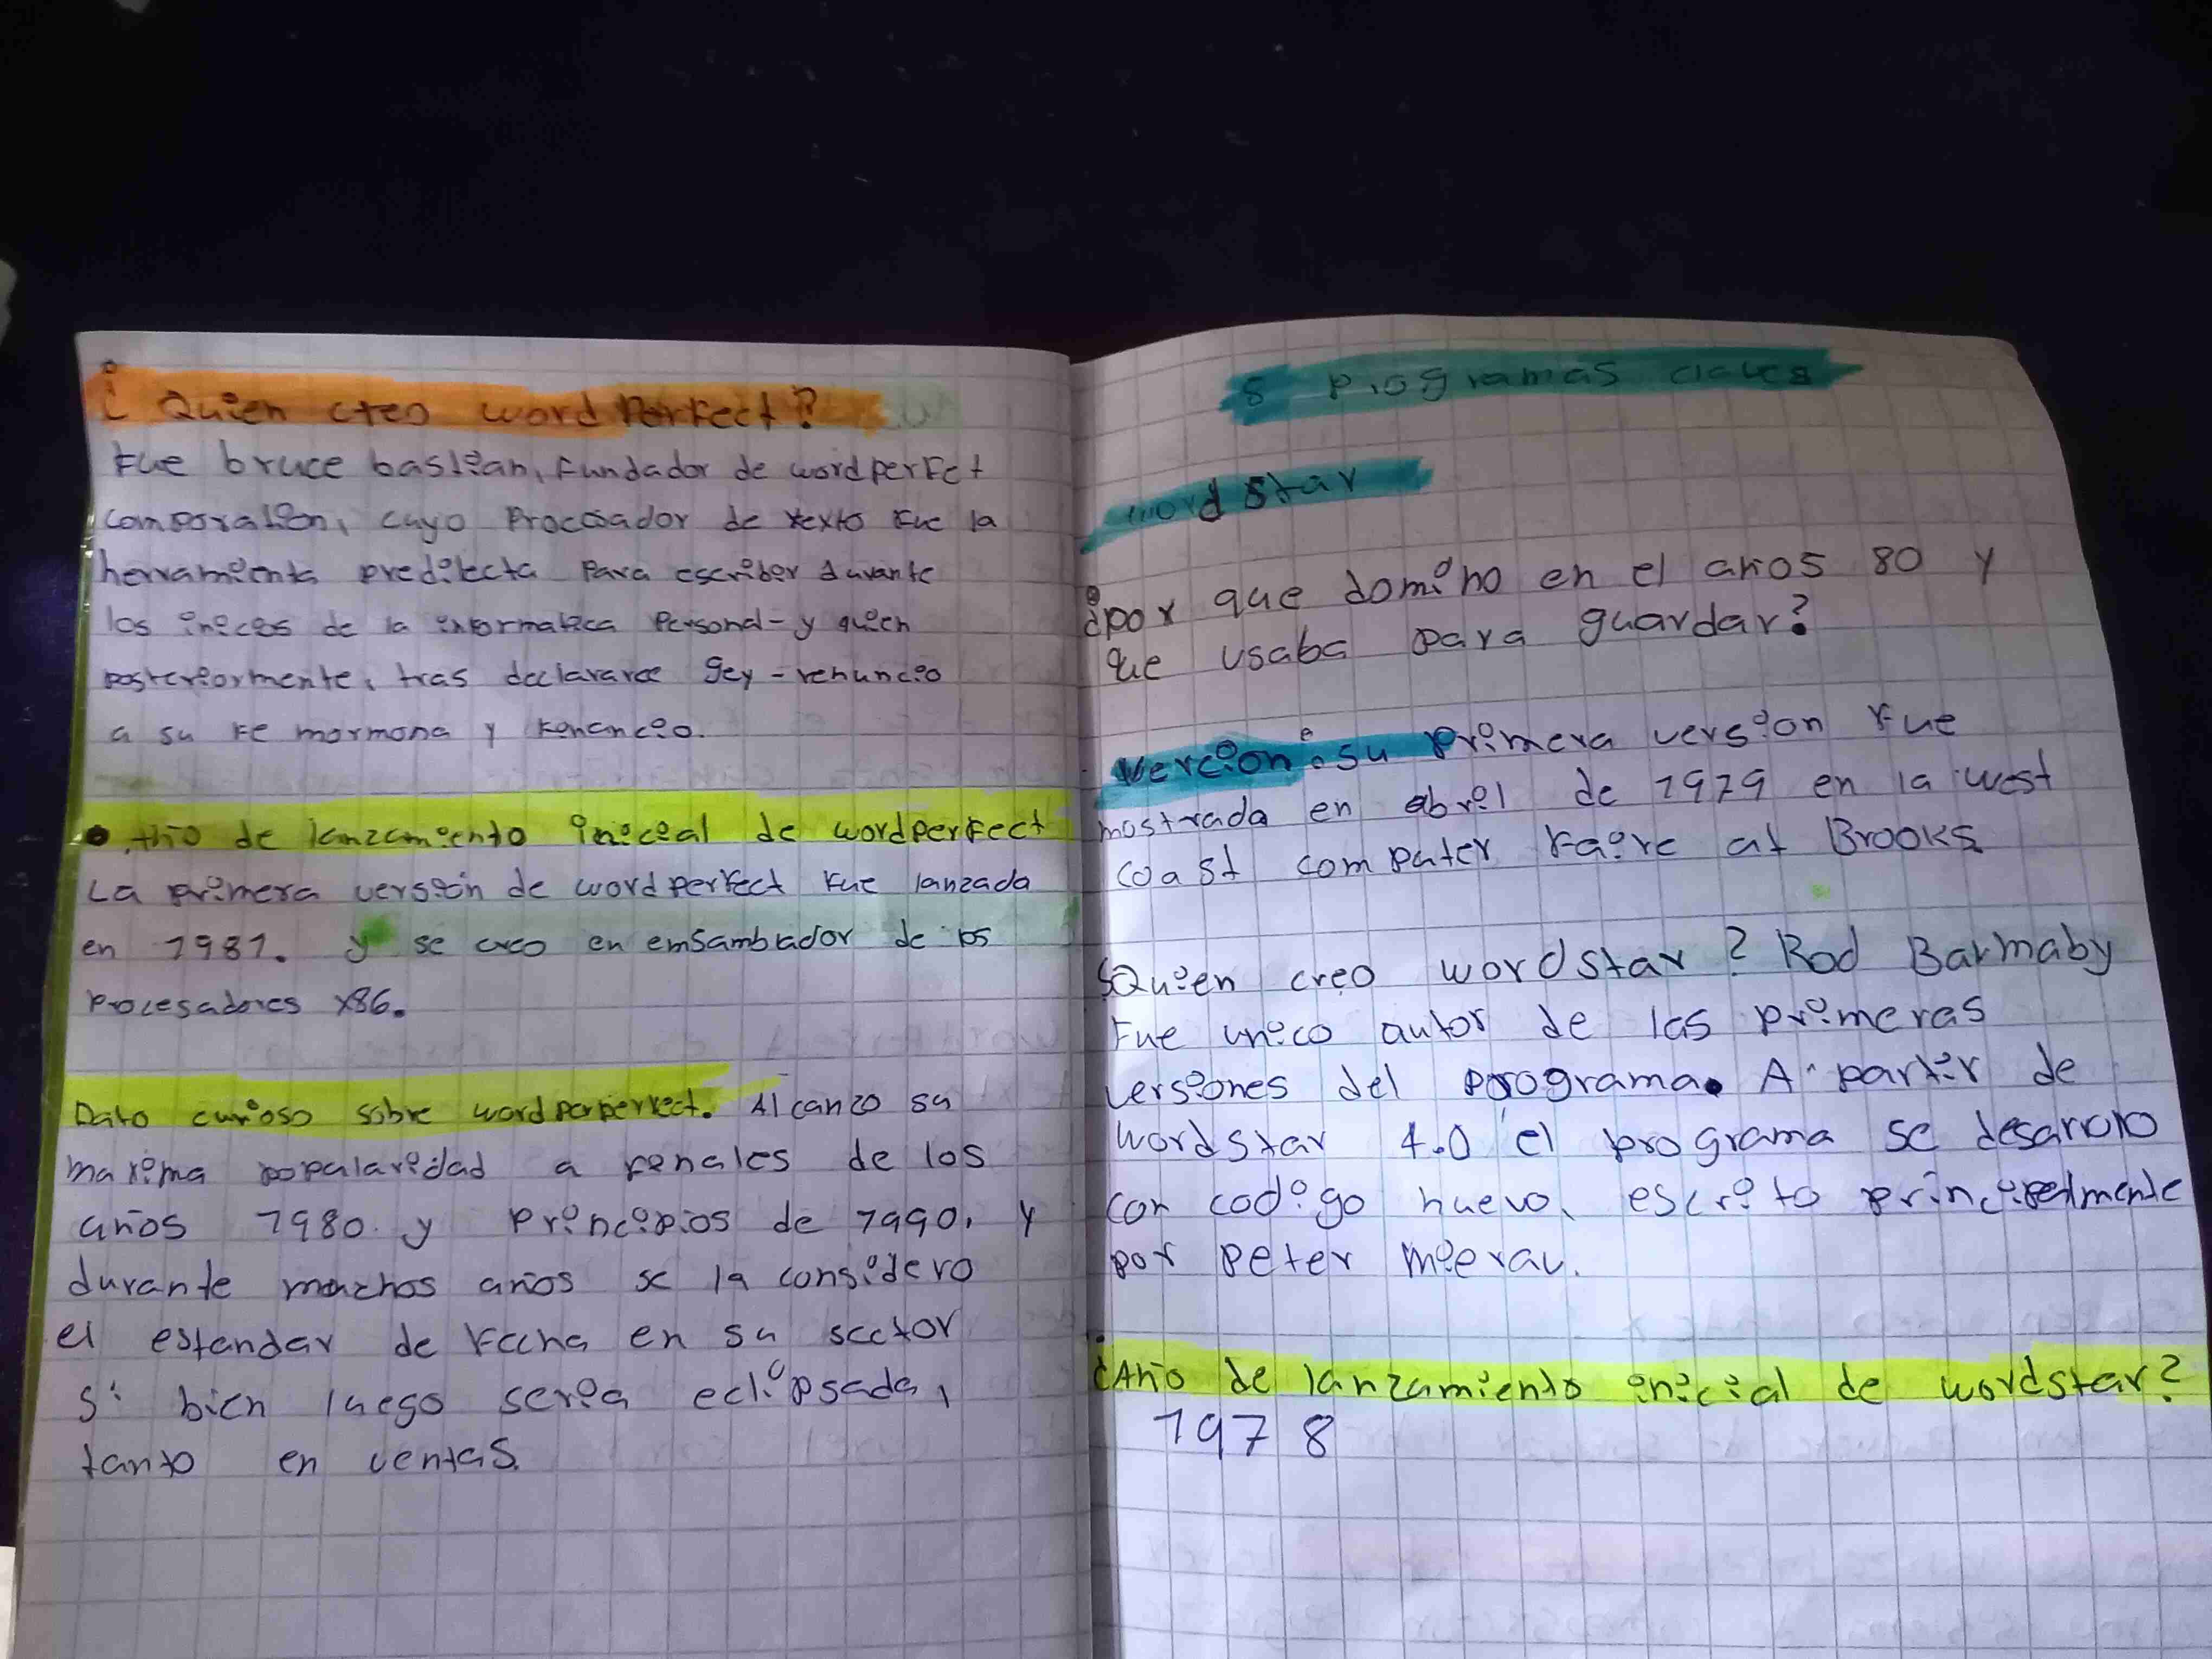 ¿Quien creo wordPerfect?
Fue bruce bastian, fundador de wordperfect
comporation, cuyo Procesador de texto fue la
herramienta predilecta Para escriber durante
los inicios de la informatica Personal-y quien
posteriormente, tras declararce gey-renuncio
a su fe mormona y
• Año de lanzamiento inicial de wordperfect
La primera version de wordperfect fue lanzada
en 1981. y se creo en emsamblador de los
Procesadores x86.
Dato curioso sobre wordperperfect. Alcanzo su
maxima popularidad a finales de los
años 1980 y principios de 1990, y
durante muchos años se la considero
el estandar de facha en su sector
si bien luego seria eclipsada,
tanto en ventas.
8 Programas claves
word Star
¿por que domino en el años 80 y
que usaba para guardar?
Vercion: su primera version fue
mostrada en abril de 1979 en la west
coast computer faire at Brooks
¿Quien creo wordstar? Rod Barmaby
Fue unico autor de las primeras
versiones del programa. A partir de
wordstar 4.0 el programa se desarrolo
con codigo nuevo, escrito principalmente
por peter mierau.
¿Año de lanzamiento inicial de wordstar?
1978